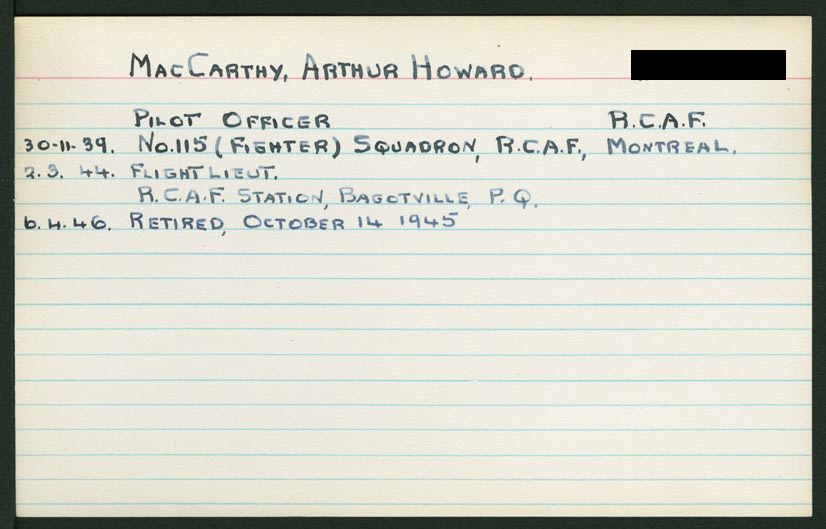 MacCarthy, Arthur Howard.
Pilot Officer R.C.A.F.
30-11-39. No.115 (Fighter) Squadron, R.C.A.F., Montreal.
2.3.44. Flight Lieut.
R.C.A.F. Station, Bagotville, P.Q.
6.4.46. Retired, October 14 1945